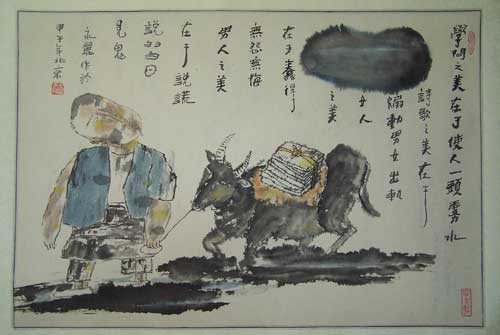 學問之美在于使人一頭霧水
詩歌之美在于
煽動男女出軌
女人
之美
在于蠢得
無怨無悔
男人之美
在于說謊
說的白日
見鬼
作於
甲午年北京